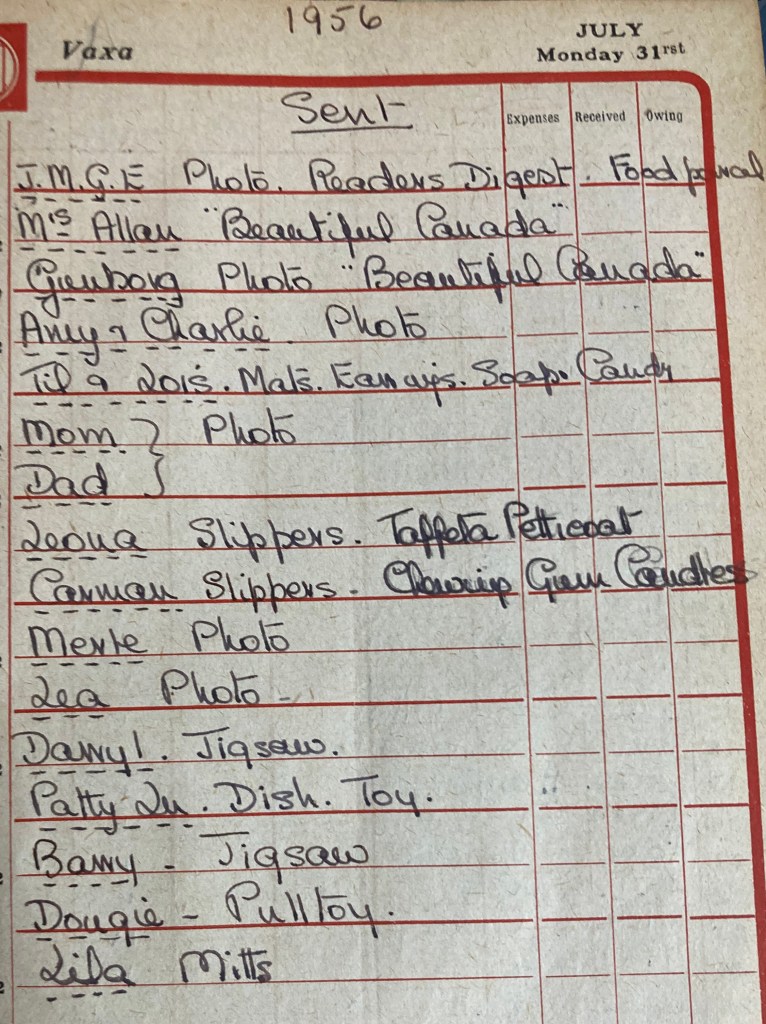 1956
Vaxa
JULY
Monday 31rst
Sent
Expenses Received Owing
J.M.G.E Photo. Readers Digest. Food parcal
Mrs Allan "Beautiful Canada"
Gunborg Photo "Beautiful Canada"
Amy & Charlie Photo
Til & Lois. Mats. Earrays. Soap. Candy
Mom } Photo
Dad }
Leona Slippers. Taffeta Petticoat
Carman Slippers. Chewing Gum Candles
Merle Photo
Lea Photo -
Darryl. Jigsaw.
Patty Lu. Dish. Toy.
Barry - Jigsaw
Dougie - Pull toy.
Lila Mitts